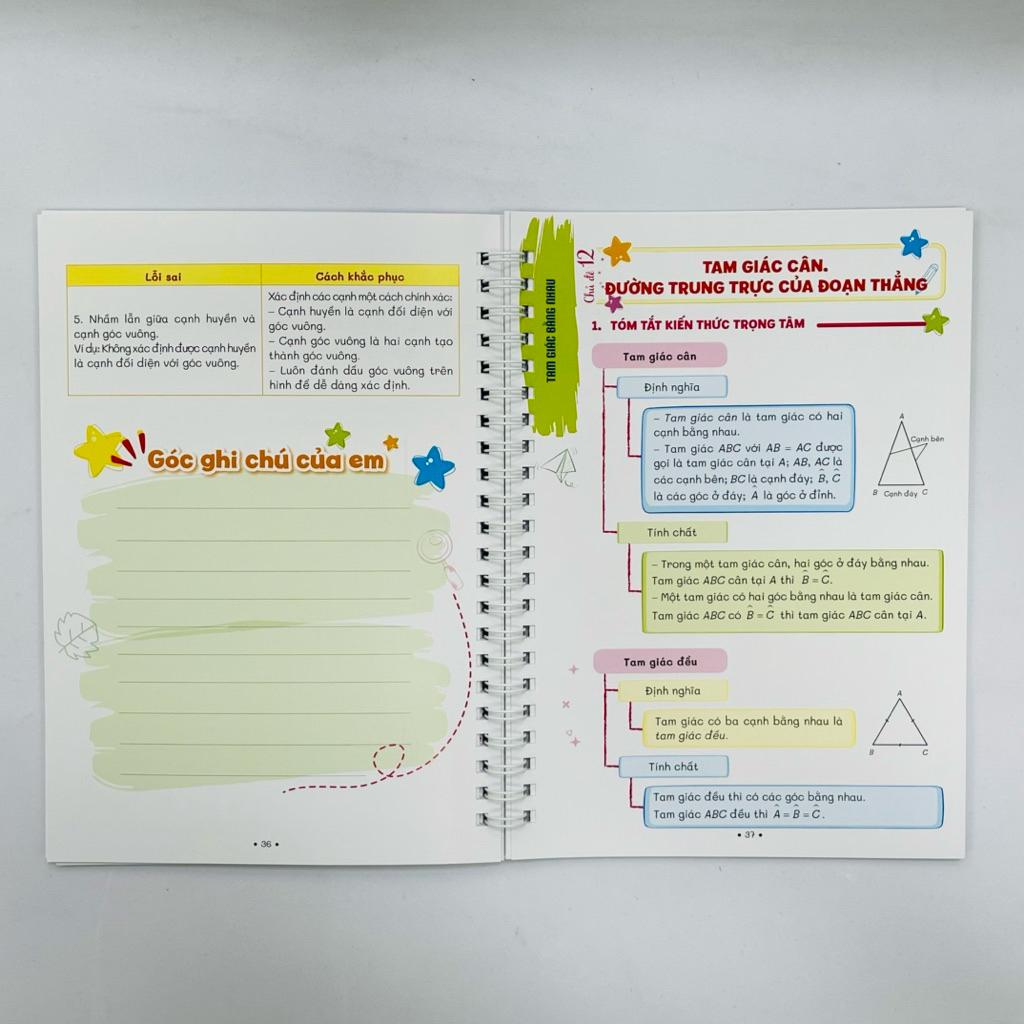 Lỗi sai
Cách khắc phục
5. Nhầm lẫn giữa cạnh huyền và
cạnh góc vuông.
Ví dụ: Không xác định được cạnh huyền
là cạnh đối diện với góc vuông.
Xác định các cạnh một cách chính xác:
– Cạnh huyền là cạnh đối diện với
góc vuông.
– Cạnh góc vuông là hai cạnh tạo
thành góc vuông.
– Luôn đánh dấu góc vuông trên
hình để dễ dàng xác định.
Góc ghi chú của em
• 36 •
TAM GIÁC BẰNG NHAU
Chủ đề 12
TAM GIÁC CÂN.
ĐƯỜNG TRUNG TRỰC CỦA ĐOẠN THẲNG
1. TÓM TẮT KIẾN THỨC TRỌNG TÂM
Tam giác cân
Định nghĩa
– Tam giác cân là tam giác có hai
cạnh bằng nhau.
– Tam giác ABC với AB = AC được
gọi là tam giác cân tại A; AB, AC là
các cạnh bên; BC là cạnh đáy; B̂, Ĉ
là các góc ở đáy; Â là góc ở đỉnh.
A
Cạnh bên
B Cạnh đáy C
Tính chất
– Trong một tam giác cân, hai góc ở đáy bằng nhau.
Tam giác ABC cân tại A thì B̂ = Ĉ.
– Một tam giác có hai góc bằng nhau là tam giác cân.
Tam giác ABC có B̂ = Ĉ thì tam giác ABC cân tại A.
Tam giác đều
Định nghĩa
Tam giác có ba cạnh bằng nhau là
tam giác đều.
A
B C
Tính chất
Tam giác đều thì có các góc bằng nhau.
Tam giác ABC đều thì Â = B̂ = Ĉ.
• 37 •